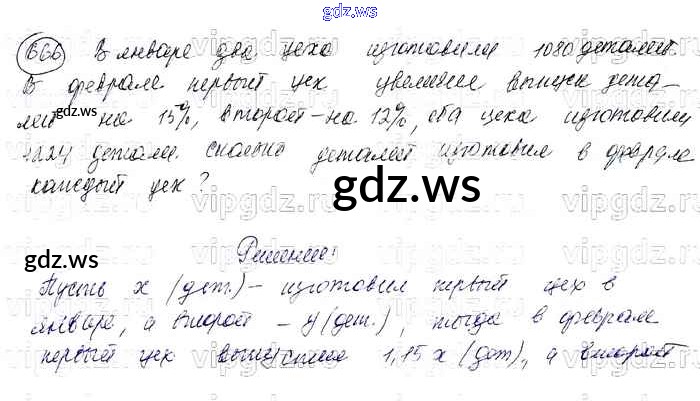 gdz.ws
666 В январе два цеха изготовили 1080 деталей.
В феврале первый цех увеличил выпуск дета-
лей на 15%, второй - на 12%, оба цеха изготовили
gdz.ws
1224 детали. Сколько деталей изготовил в феврале
каждый цех?
gdz.ws
Решение:
Пусть x (дет.) - изготовил первый цех в
январе, а второй - y (дет.), тогда в феврале
первый цех выпустил 1,15x (дет)., а второй
gdz.ws